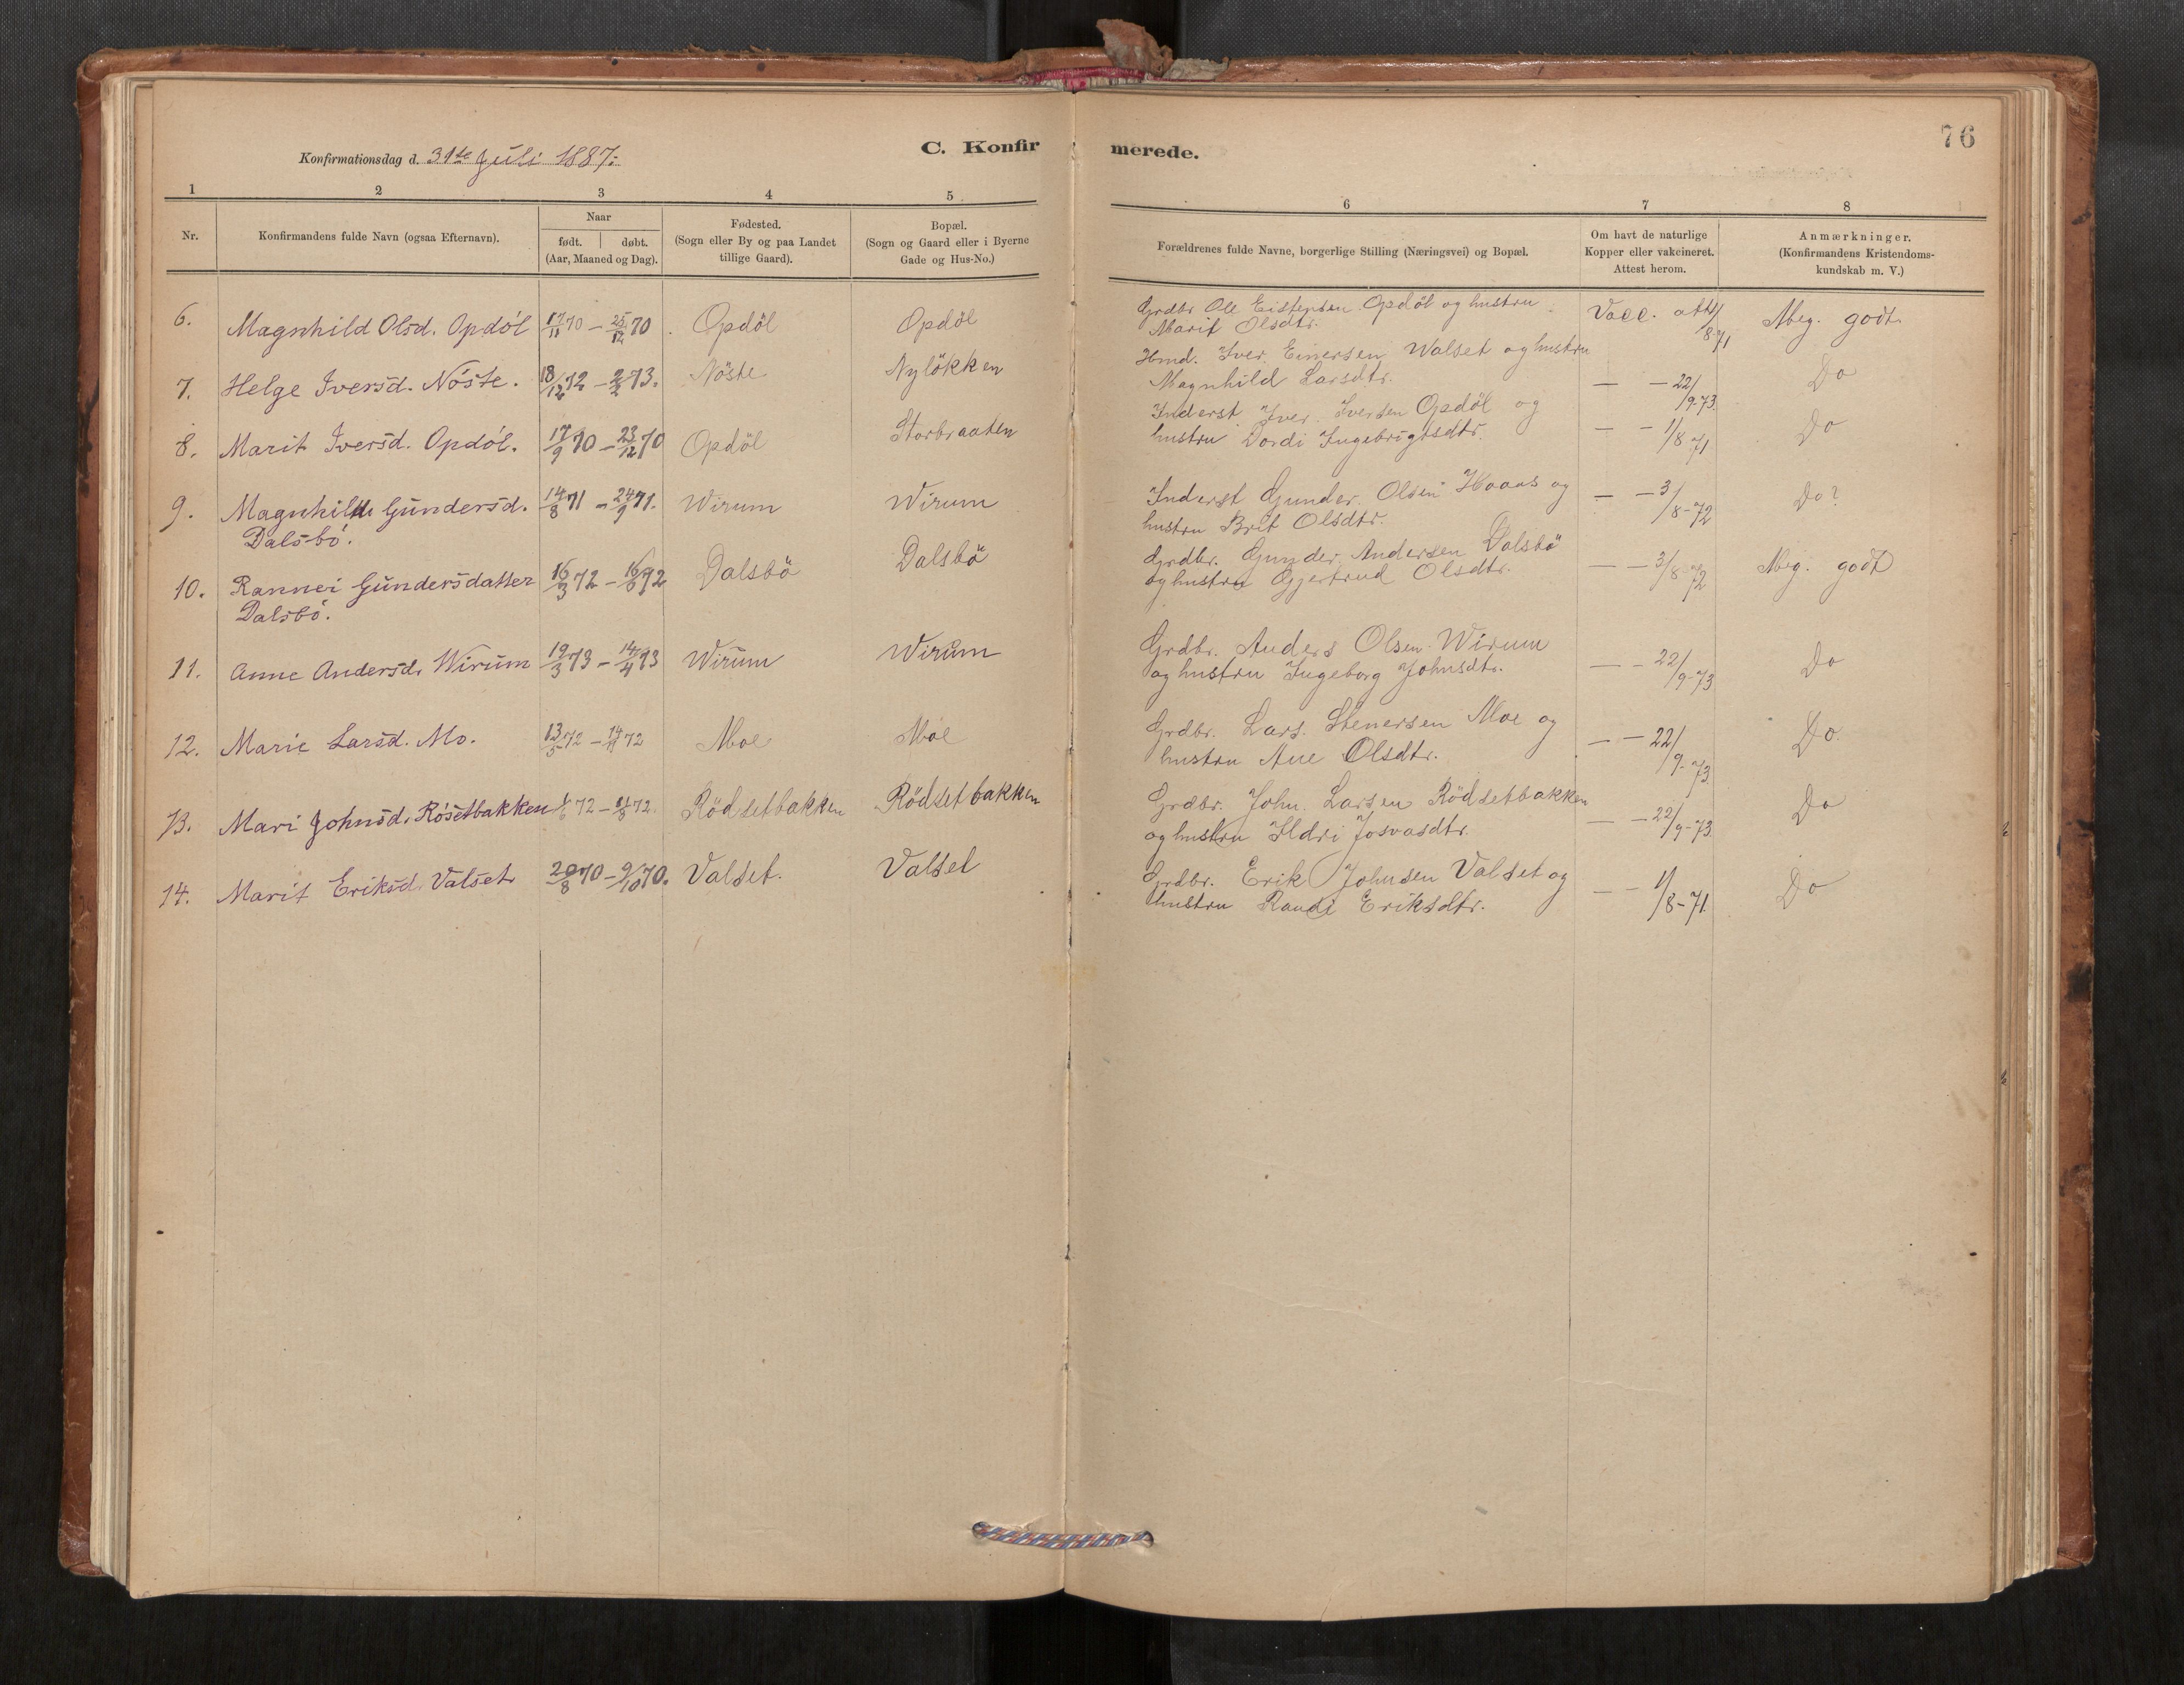 76
Konfirmationsdag d. 31te Juli 1887.
C. Konfirmerede.
1 2 3 4 5 6 7 8
Nr. | Konfirmandens fulde Navn (ogsaa Efternavn). | Naar født. døbt. (Aar, Maaned og Dag). | Fødested. (Sogn eller By og paa Landet tillige Gaard). | Bopæl. (Sogn og Gaard eller i Byerne Gade og Hus-No.) | Forældrenes fulde Navne, borgerlige Stilling (Næringsvei) og Bopæl. | Om havt de naturlige Kopper eller vakcineret. Attest herom. | Anmærkninger. (Konfirmandens Kristendomskundskab m. V.)
6. Magnhild Olsd. Opdöl 17/11 70 – 25/12 70 Opdöl Opdöl Grdbr Ole Eistensen Opdöl og hustru
Marit Olsdtr. Vacc. att 1/8 71 Meg. godt
7. Helge Iversd. Nöste. 18/12 72 – 2/2 73. Nöste Nylökken Hmd. Iver Einersen Walset og hustru
Magnhild Larsdtr. — — 22/9-73 Do
8. Marit Iversd. Opdöl. 17/9 70 – 23/12 70 Opdöl Storbraaten Inderst Iver Iversen Opdöl og
hustru Dordi Ingebrigtsdtr. — — 1/8 71 Do
9. Magnhild Gundersd. 14/8 71 – 24/9 71. Wirum Wirum Inderst Gunder Olsen Haaas og
Dalsbö. hustru Brit Olsdtr. — — 3/8-72 Do?
10. Rannei Gundersdatter 16/3 72 – 16/6 72 Dalsbö Dalsbö Grdbr. Gunder Andersen Dalsbö
Dalsbö. og hustru Gjertrud Olsdtr. — — 3/8-72 Meg. godt
11. Anne Andersd. Wirum 19/3 73 – 14/4 73 Wirum Wirum Grdbr. Anders Olsen Wirum
og hustru Ingeborg Johnsdtr. — — 22/9-73 Do
12. Marie Larsd. Mo. 13/5 72 – 72 Moe Moe Grdbr. Lars Stenersen Moe og
hustru Ane Olsdtr. — — 22/9-73 Do
13. Mari Johnsd. Rösetbakken 1/6 72 – 11/8 72. Rödsetbakken Rödsetbakken Grdbr. John Larsen Rödsetbakken
og hustru Ildri Josvasdtr. — — 22/9-73 Do
14. Marit Eriksd. Valset 20/8 70 – 9/10 70. Valset. Valset Grdbr. Erik Johnsen Valset og
hustru Randi Eriksdtr. — — 1/8-71. Do